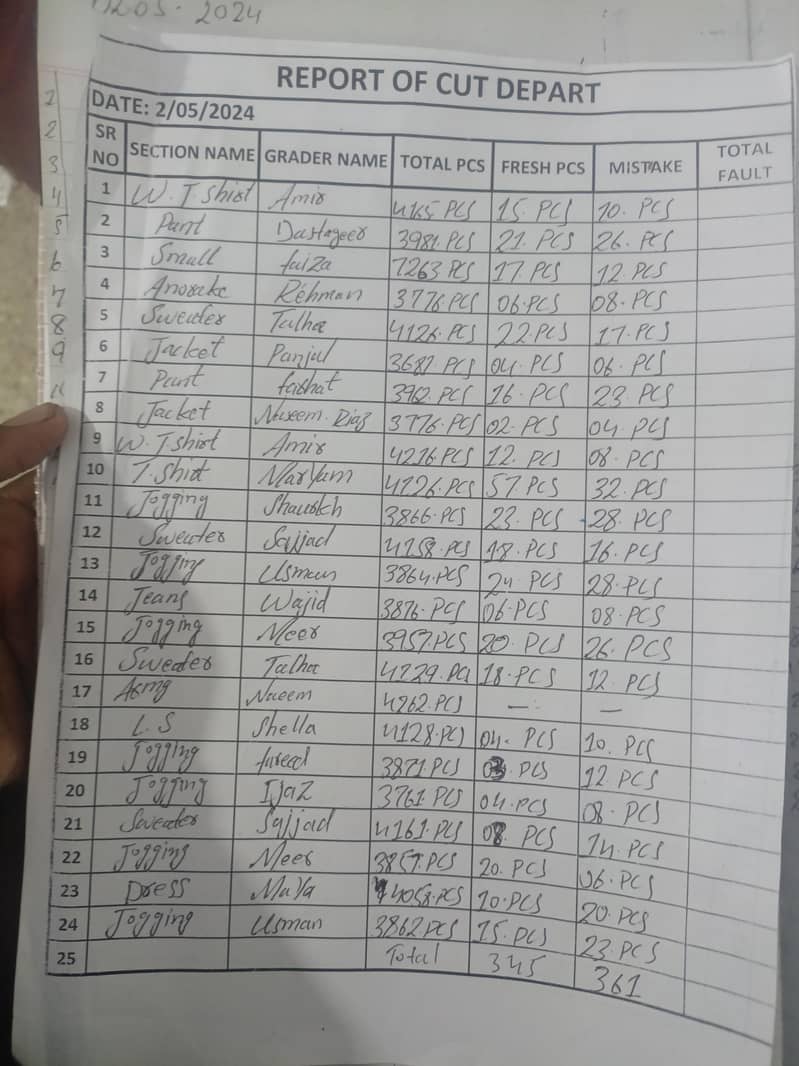 02.05.2024
REPORT OF CUT DEPART
DATE: 2/05/2024
SR NO SECTION NAME GRADER NAME TOTAL PCS FRESH PCS MISTAKE TOTAL FAULT
1 W. T Shirt Amir 4165.PCS 15. PCS 10. PCS
2 Pant Dastageer 3981.PCS 21. PCS 26. PCS
3 Small faiza 7263 PCS 17. PCS 12. PCS
4 Anorake Rehman 3776 PCS 06.PCS 08. PCS
5 Sweater Talha 4126. PCS 22.PCS 17. PCS
6 Jacket Panjul 3687. PCS 04. PCS 06. PCS
7 Pant 3962. PCS 16. PCS 23. PCS
8 Jacket Naseem. Riaz 3776.PCS 02. PCS 04. PCS
9 W. T Shirt Amir 4216.PCS 12. PCS 08. PCS
10 T. Shirt Maryam 4126.PCS 57. PCS 32. PCS
11 Jogging 3866.PCS 23. PCS 28. PCS
12 Sweater Sajjad 4158.PCS 18. PCS 16. PCS
13 Jogging Usman 3864.PCS 24. PCS 28. PCS
14 Jeans Wajid 3876. PCS 06.PCS 08. PCS
15 Jogging Meer 3957.PCS 20. PCS 26. PCS
16 Sweater Talha 4129. PCS 18. PCS 12. PCS
17 Naeem 4262.PCS — —
18 L.S Shella 4128.PCS 04. PCS 10. PCS
19 Jogging fareed 3871.PCS 03. PCS 12. PCS
20 Jogging IJaZ 3761.PCS 04.PCS 08. PCS
21 Sweater Sajjad 4161.PCS 08. PCS 14. PCS
22 Jogging Meer 3857.PCS 20. PCS 06. PCS
23 Dress MaYa 4058.PCS 10.PCS 20. PCS
24 Jogging Usman 3862.PCS 15. PCS 23. PCS
25 Total 345 361